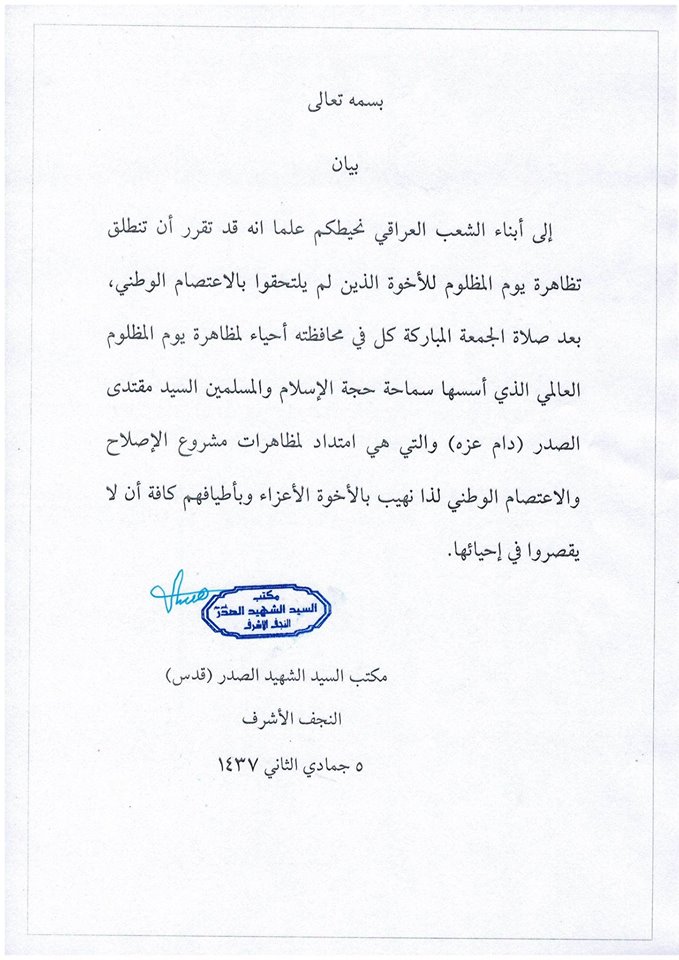 بسمه تعالى
بيان
إلى أبناء الشعب العراقي نحيطكم علما انه قد تقرر أن تنطلق
تظاهرة يوم المظلوم للأخوة الذين لم يلتحقوا بالاعتصام الوطني،
بعد صلاة الجمعة المباركة كل في محافظته أحياء لمظاهرة يوم المظلوم
العالمي الذي أسسها سماحة حجة الإسلام والمسلمين السيد مقتدى
الصدر (دام عزه) والتي هي امتداد لمظاهرات مشروع الإصلاح
والاعتصام الوطني لذا نهيب بالأخوة الأعزاء وبأطيافهم كافة أن لا
يقصروا في إحيائها.
مكتب
السيد الشهيد الصدر
النجف الاشرف
مكتب السيد الشهيد الصدر (قدس)
النجف الأشرف
٥ جمادي الثاني ١٤٣٧